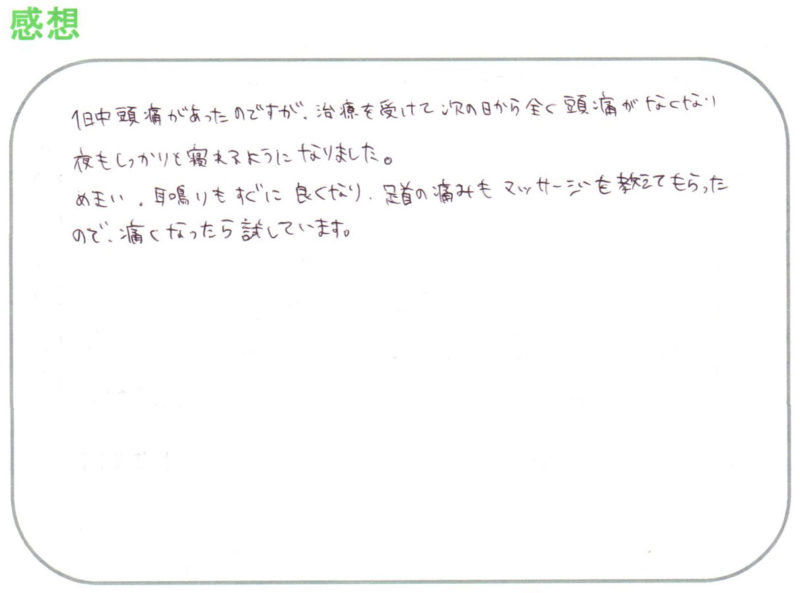 感想
1日中頭痛があったのですが、治療を受けて次の日から全く頭痛がなくなり
夜もしっかりと寝れるようになりました。
めまい、耳鳴りもすぐに良くなり、足首の痛みもマッサージを教えてもらった
ので、痛くなったら試しています。